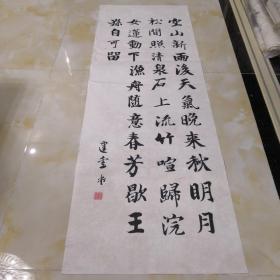 空山新雨後天氣晚来秋明月
松間照清泉石上流竹喧歸浣
女蓮動下漁舟隨意春芳歇王
孫自可留